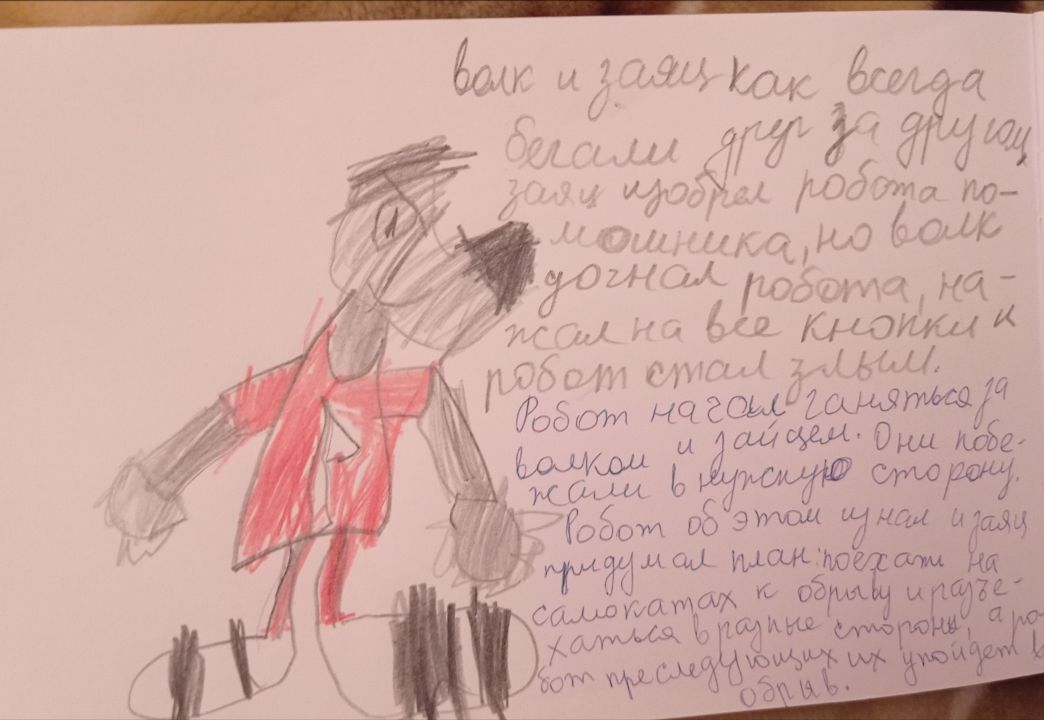 волк и заяц как всегда
бегали друг за другом
заяц изобрел робота по-
мошника, но волк
догнал робота, на-
жал на все кнопки и
робот стал злым.
Робот начал ганяться за
волком и зайцем. Они побе-
жали в нужную сторону.
Робот об этом узнал и заяц
придумал план: поехать на
самокатах к обрыву и разъе-
хаться в разные стороны, а ро-
бот преследующих их упойдет в
обрыв.